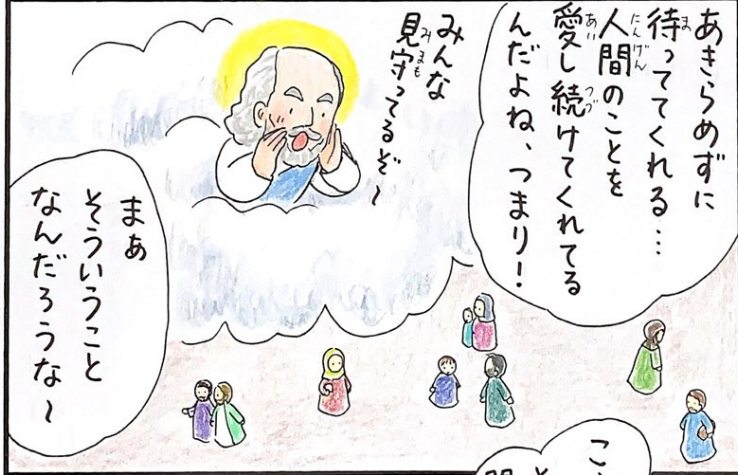 あきらめずに
待っててくれる…
人間のことを
愛し続けてくれてる
んだよね、つまり！
みんな
見守ってるぞ～
まぁ
そういうこと
なんだろうな～
こ